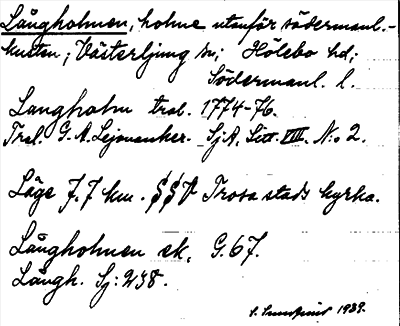 Långholmen, holme utanför södermanl.-
kusten; Västerljung sn; Hölebo hd;
Södermanl. l.
Langholm trol. 1774-76.
Trol. G. A. Lejonanker. Sj A. Litt. VIII. N:o 2.
Läge 7.7 km. SSV Trosa stads kyrka.
Långholmen ek. G. 67.
Långh. Sj: 238.
1939.